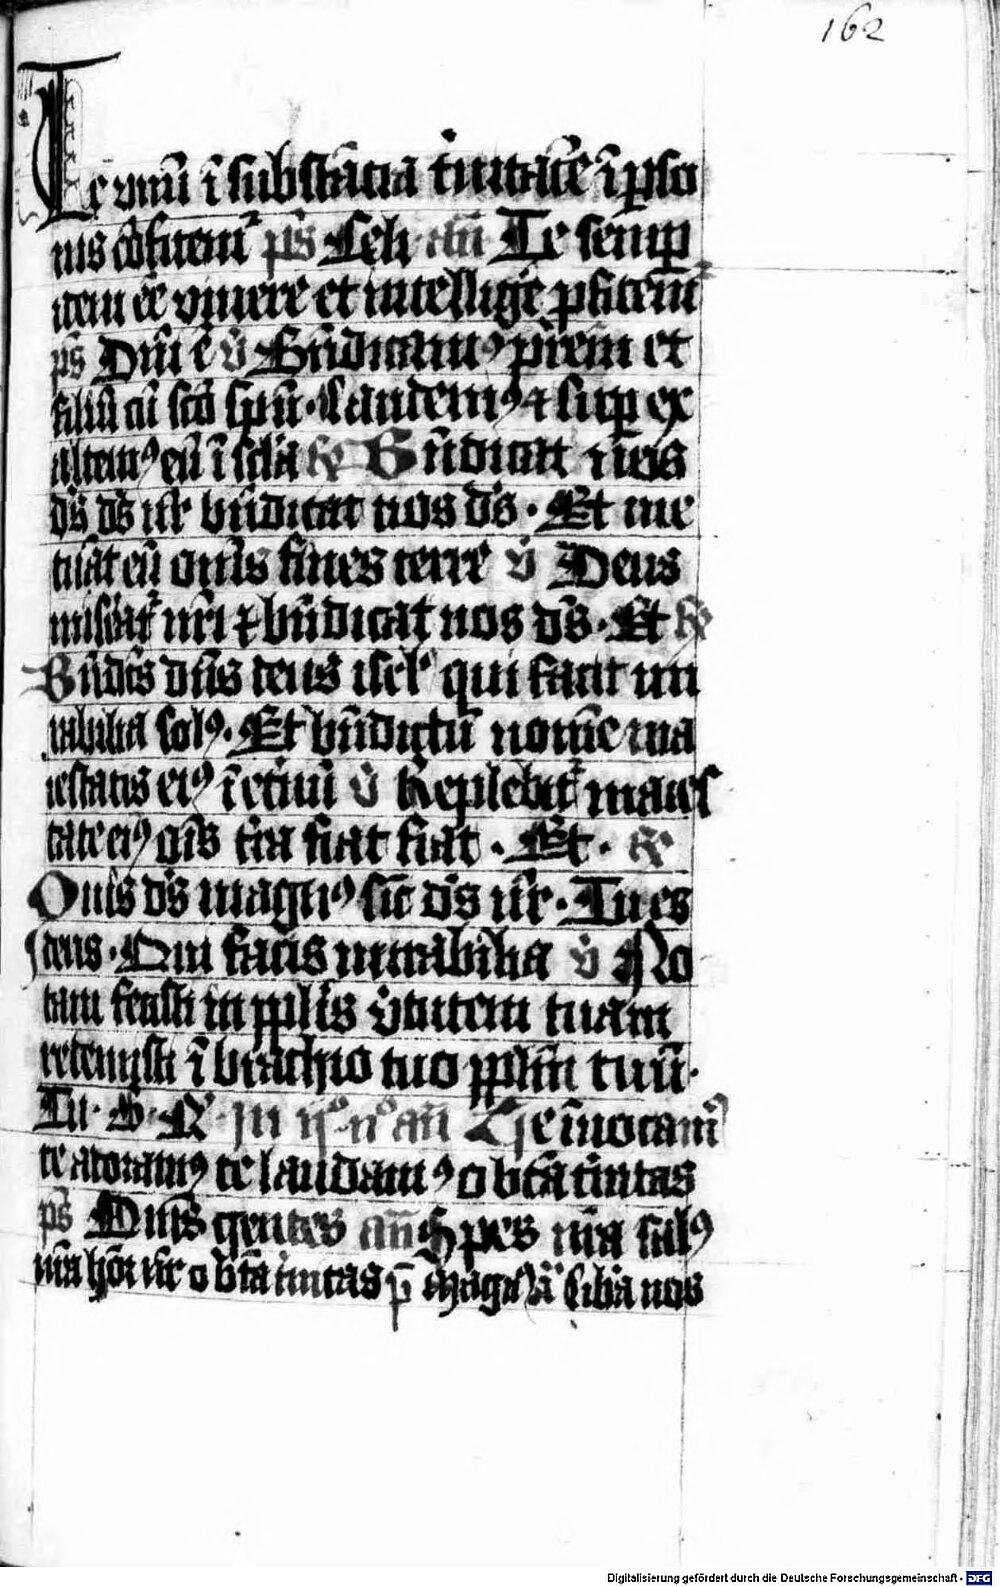 162
Te vnū ī substācia t'nitatē ī pso
nis cōfitem² ps̄ Celi an̄ Te semp
item ēē viuere et intellige pfitem²
ps̄ Dn̄i ē v̄ Bn̄dicam⁹ prēm et
filiū cū scō spū · Laudem⁹ ⁊ sup ex
altem⁹ eū ī sc̄la R Bn̄dicat nos
ds̄ ds̄ nr̄ bn̄dicat nos ds̄ · Et me
tuāt eū om̄s fines terre v̄ Deus
misēat² nr̄i ⁊ bn̄dicat nos ds̄ · Et R
Bn̄dcs̄ dn̄s deus isrl' qui facit mi
rabilia sol⁹ · Et bn̄dictū nomē ma
iestatis ei⁹ ī etnū v̄ Replebit² maies
tate ei⁹ om̄s tr̄a fiat fiat · Et · R
Quis ds̄ magn⁹ sic ds̄ nr̄ · Tu es
deus · Qui facis mirabilia v̄ No
tam fecisti in pplis v̄tutem tuam
redemisti ī brachio tuo pplm̄ tuū ·
Tu · In ij° n° an̄ Te īuocam⁹
te adoram⁹ te laudam⁹ o btā t'nitas
ps̄ Dn̄s gentes an̄ Spes nr̄a sal⁹
nr̄a hōr nr̄ o btā t'nitas p̄ libā nos
Digitalisierung gefördert durch die Deutsche Forschungsgemeinschaft - DFG